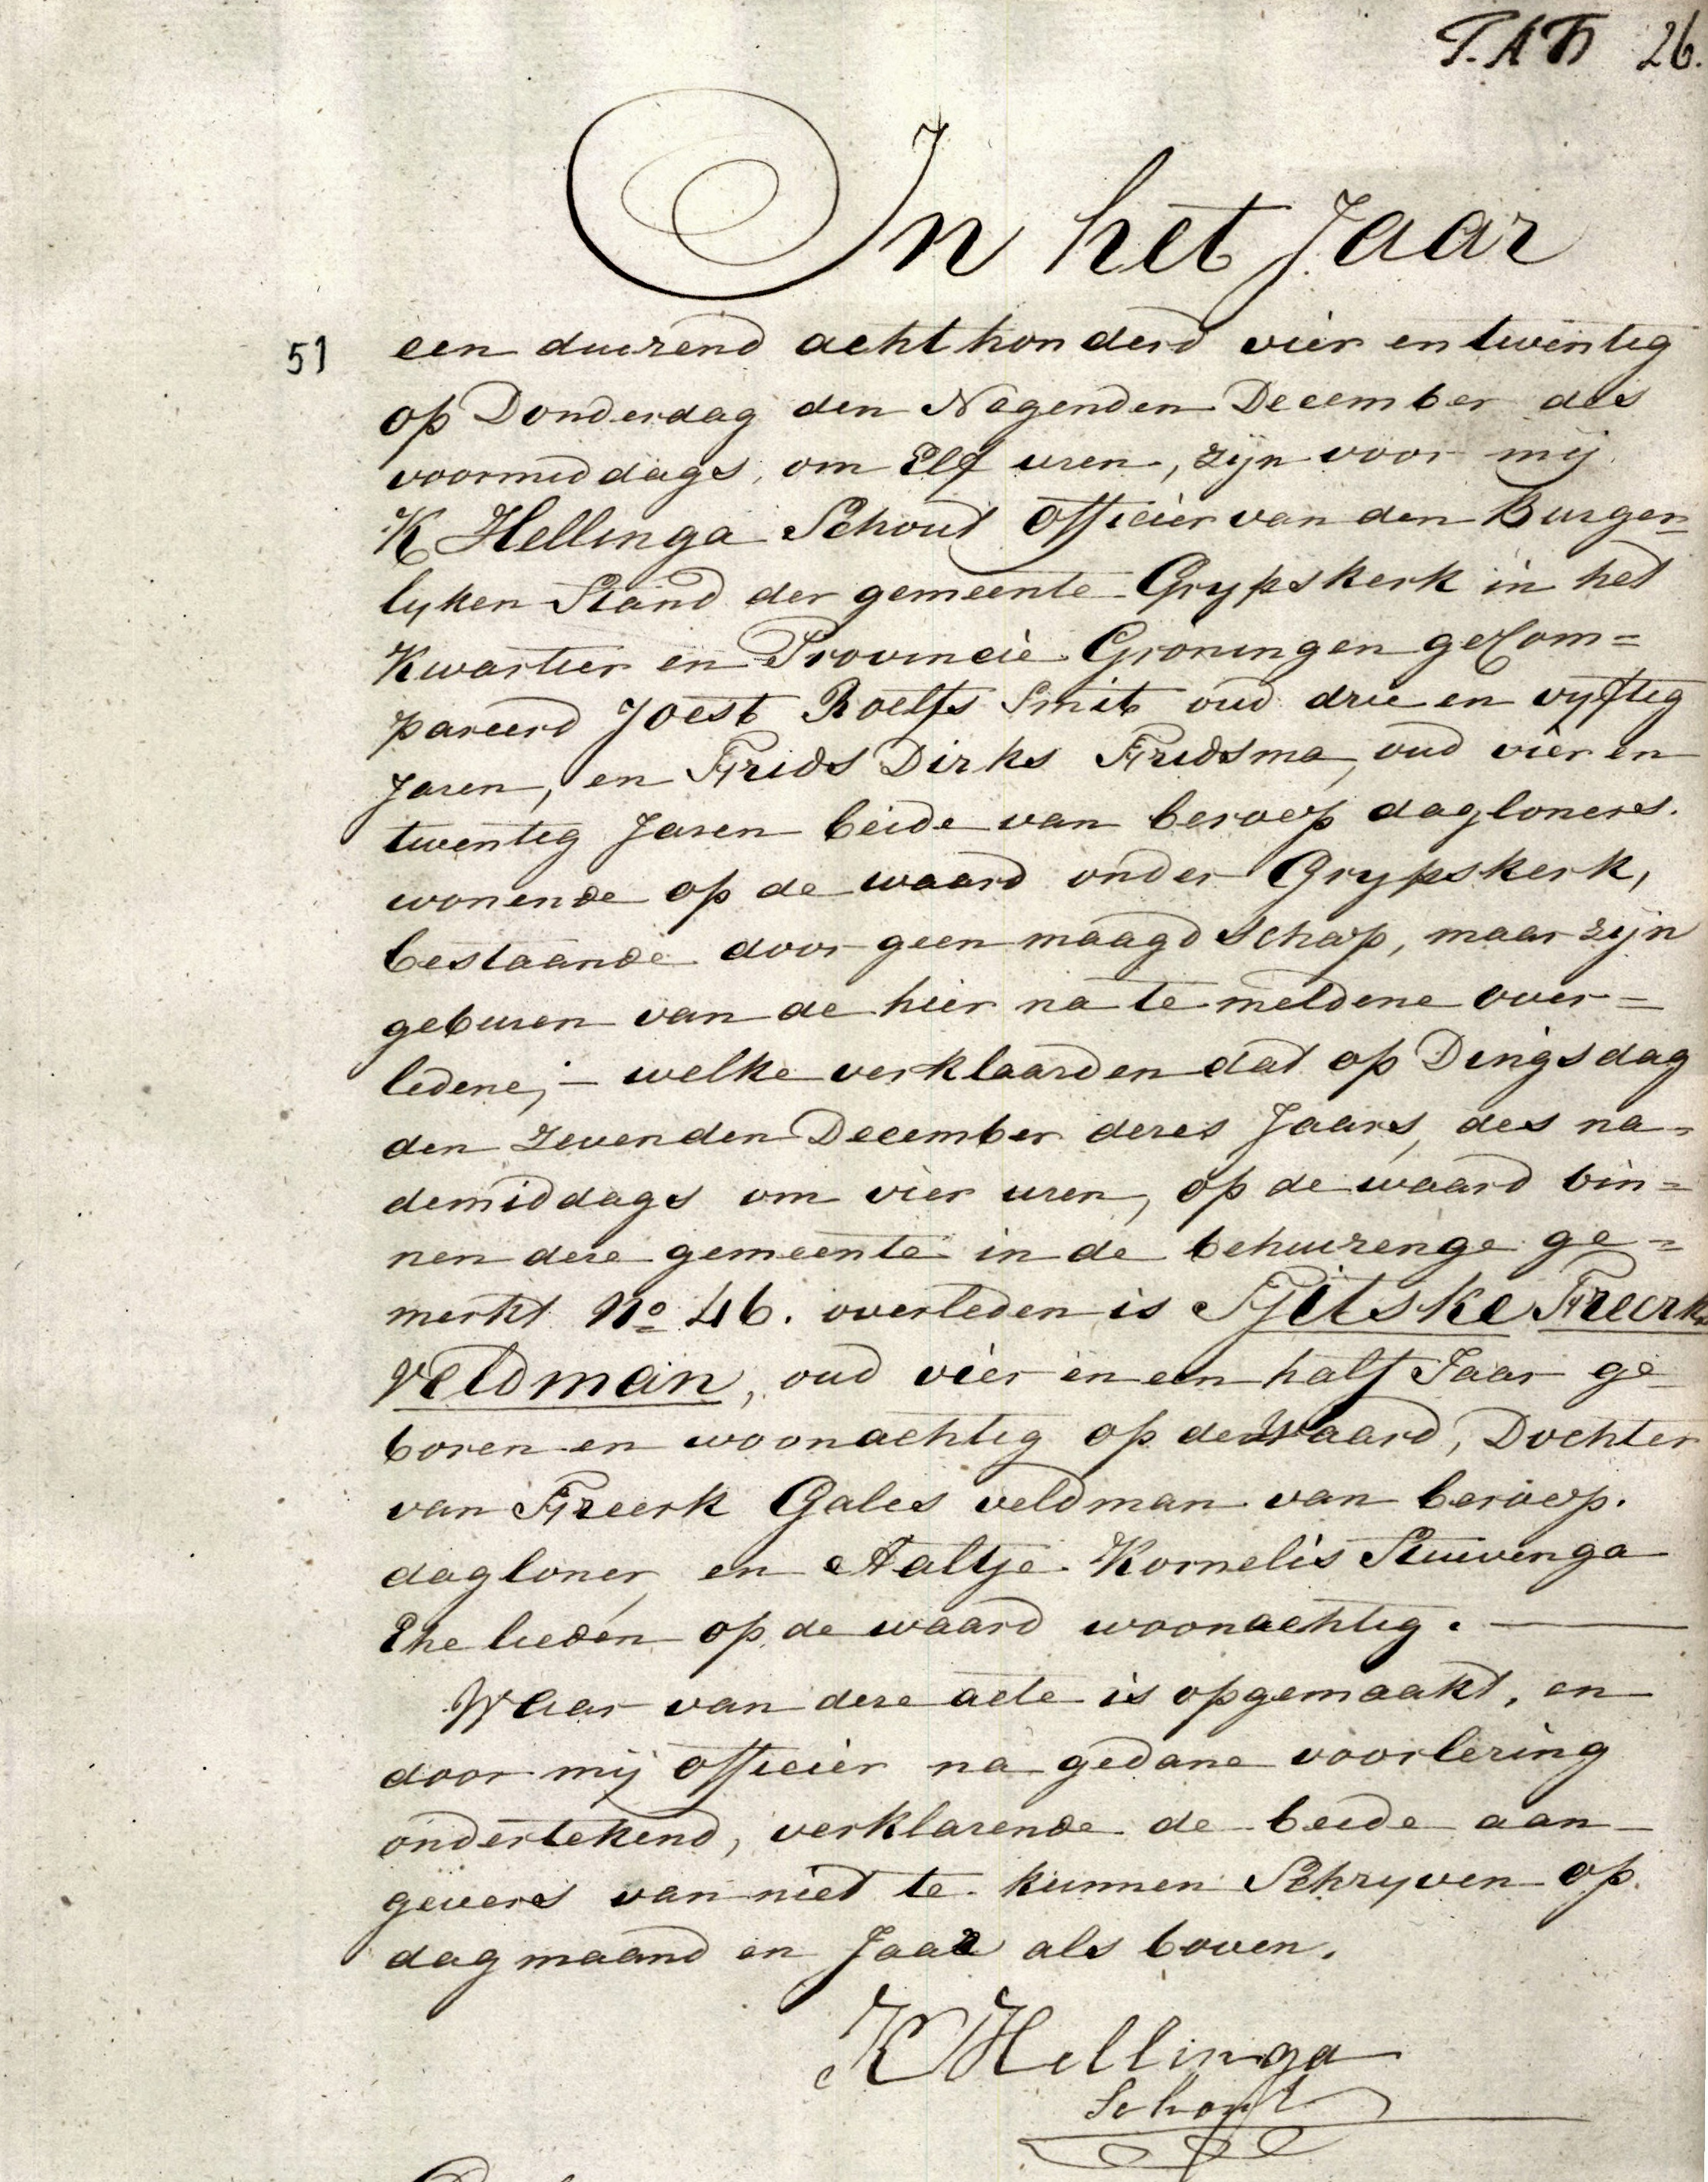 26.
In het Jaar
51 een duizend acht honderd vier en twentig
op Donderdag den Negenden December des
voormiddags, om Elf uren, zijn voor mij
K Hellinga Schout officier van den Burger=
lyken Stand der gemeente Grypskerk in het
Kwartier en Provincie Groningen geCom=
pareerd Joest Roelfs Smit oud drie en vyftig
Jaren, en Frids Dirks Fridsma, oud vier en
twentig Jaren beide van beroep dagloners.
wonende op de waard onder Grypskerk,
bestaande door geen maagdschap, maar zijn
geburen van de hier na te meldene over=
ledene; – welke verklaarden dat op Dingsdag
den zevenden December dezes Jaars, des na=
demiddags om vier uren, op de waard bin=
nen deze gemeente in de behuizenge ge=
merkt No 46. overleden is Tjitske Freerks
Veldman, oud vier en een half Jaar ge
boren en woonachtig op de Waard, Dochter
van Freerk Gales veldman van beroep.
dagloner, en Aaltje Kornelis Stuivenga
Ehe lieden op de waard woonachtig. —
Waar van deze acte is opgemaakt, en
door mij officier na gedane voorlezing
ondertekend, verklarende de beide aan
gevers van niet te kunnen Schryven op.
dag maand en Jaar als boven.
K Hellinga
Schout